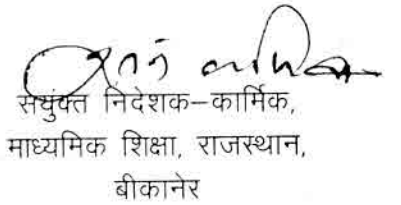 संयुक्त निदेशक–कार्मिक,
माध्यमिक शिक्षा, राजस्थान,
बीकानेर